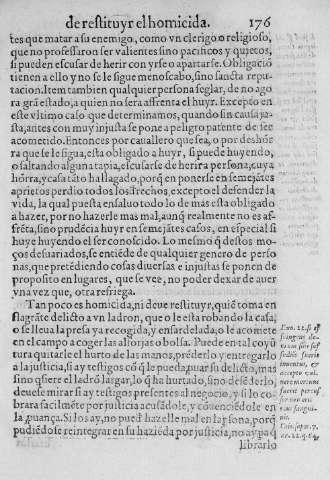 de restituyr el homicida. 176
tes que matar a su enemigo, como vn clerigo o religioso,
que no professaron ser valientes sino pacificos y quietos,
si pueden escusar de herir con yrse o apartarse. Obligació
tienen a ello y no se le sigue menoscabo, sino sancta repu-
tacion. Item tambien qualquier persona seglar, de no ago
ra grã estado, a quien no sera affrenta el huyr. Excepto en
este vltimo caso que determinamos, quando sin causa ja-
sta, antes con muy injusta se pone a peligro patente de ser
acometido. Entonces por cauallero que sea, o por deshõ
ra que se le sigua, esta obligado a huyr, si puede huyendo,
o saltando alguna tapia, escusarse de herir a persona, cuya
hõrra, y casa tãto ha llagado, porq̃ en ponerse en semejãtes
aprietos perdio todos los drechos, excepto el defender la
vida, la qual puesta en saluo todo lo de mas esta obligado
a hazer, por no hazerle mas mal, aunq̃ realmente no es af-
frẽta, sino prudẽcia huyr en semejãtes casos, en especial si
huye huyendo el ser conoscido. Lo mesmo q̃ destos mo-
ços desuariados, se entiẽde de qualquier genero de perso
nas, que pretẽdiendo cosas diuersas e injustas se ponen de
proposito en lugares, que se vee, no poder dexar de auer
vna vez que, otra refriega.
Tanpoco es homicida, ni deue restituyr, quiẽ toma en
flagrãte delicto a vn ladron, que o le esta robando la casa,
o se lleua la presa ya recogida, y ensardelada, o le acomete
en el campo a coger las alforjas o bolsa. Puede en tal coyũ
tura quitarle el hurto de las manos, prẽderlo y entregarlo
a la justicia, si ay testigos cõ q̃ le pueda puar su delicto, mas
sino q̃siere el ladrõ largar, lo q̃ ha hurtado, sino defẽderlo,
deuese mirar si ay testigos presentes al negocio, y si lo co-
brara facilmẽte por justicia acusãdole, y cõuenciẽdole en
la puança. Si los ay, no puede hazelle mal en la psona, porq̃
pudiẽdose reintegrar en su haziẽda por justicia, no ay paq̃
librarlo
Exo. 22. si ef
sub die